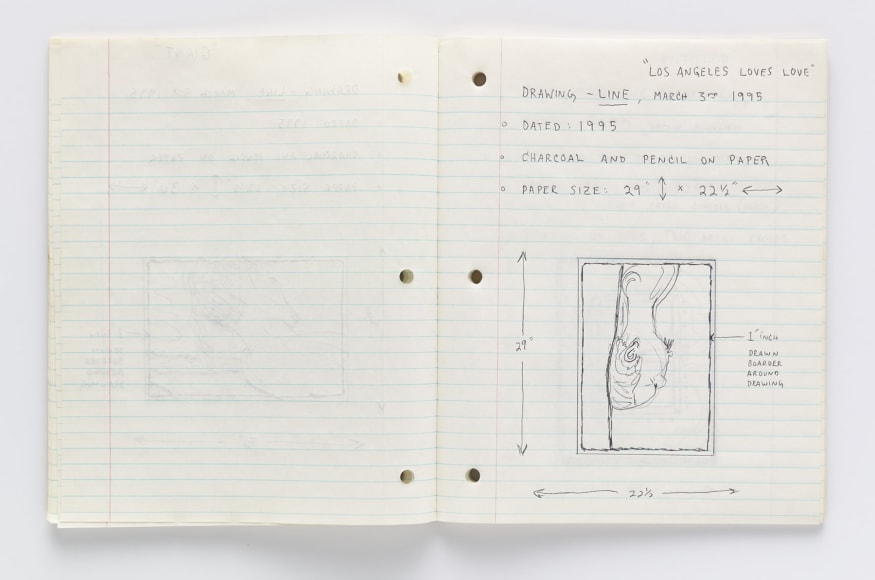 "LOS ANGELES LOVES LOVE"
DRAWING - LINE, MARCH 3RD 1995
DATED: 1995
CHARCOAL AND PENCIL ON PAPER
PAPER SIZE: 29" ↕ x 22½" ↔
29"
1" INCH
DRAWN
BOARDER
AROUND
DRAWING
22½